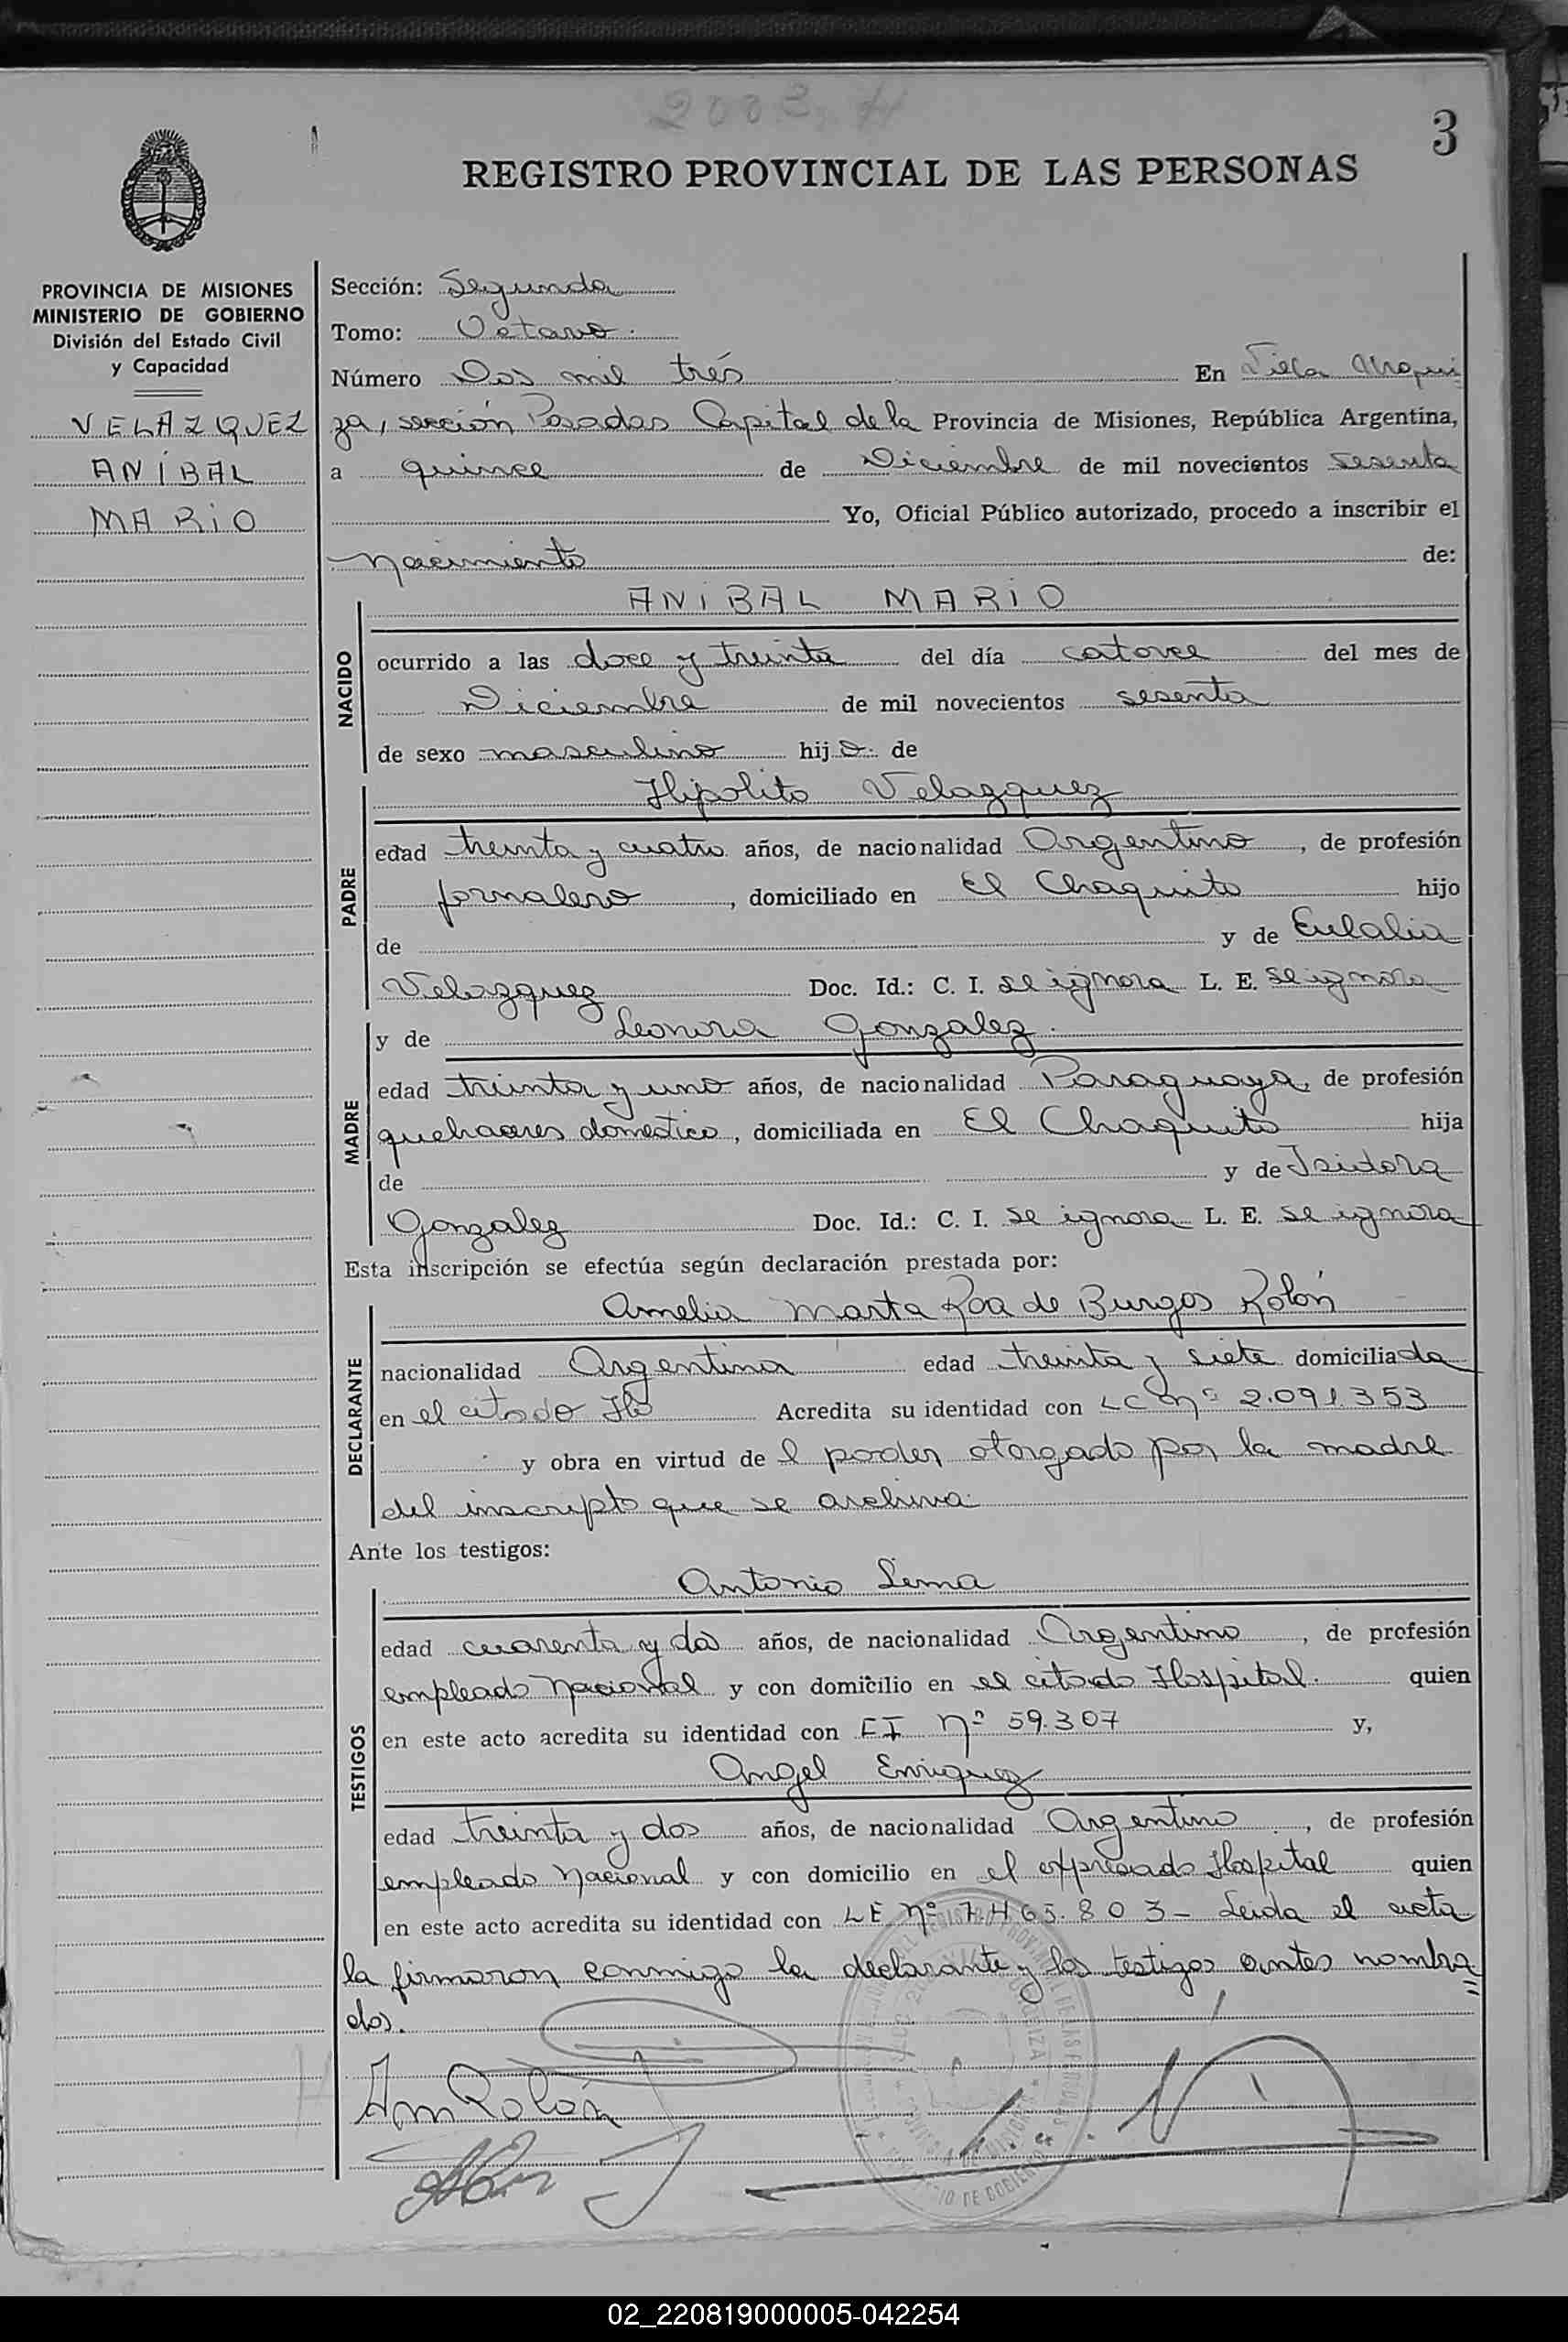 2003. H
3
REGISTRO PROVINCIAL DE LAS PERSONAS
PROVINCIA DE MISIONES
MINISTERIO DE GOBIERNO
División del Estado Civil
y Capacidad
VELAZQUEZ
ANÍBAL
MARIO
Sección: Segunda
Tomo: Octavo.
Número Dos mil trés En Villa Urqui
za, sección Posadas Capital de la Provincia de Misiones, República Argentina,
a quince de Diciembre de mil novecientos sesenta
Yo, Oficial Público autorizado, procedo a inscribir el
Nacimiento de:
NACIDO
ANIBAL MARIO
ocurrido a las doce y treinta del día catorce del mes de
Diciembre de mil novecientos sesenta
de sexo masculino hijo de
PADRE
Hipolito Velazquez
edad treinta y cuatro años, de nacionalidad Argentino, de profesión
jornalero, domiciliado en El Chaquito hijo
de y de Eulalia
Velazquez Doc. Id.: C. I. se ignora L. E. se ignora
MADRE
y de Leonora Gonzalez.
edad treinta y uno años, de nacionalidad Paraguaya, de profesión
quehaceres domestico, domiciliada en El Chaquito hija
de y de Isidora
Gonzalez Doc. Id.: C. I. se ignora L. E. se ignora
Esta inscripción se efectúa según declaración prestada por:
DECLARANTE
Amelia Marta Roa de Burgos Rolón
nacionalidad Argentina edad treinta y siete domiciliada
en el citado Acredita su identidad con LC nº 2.091.353
y obra en virtud de l poder otorgado por la madre
del inscripto que se archiva
Ante los testigos:
TESTIGOS
Antonio Lema
edad cuarenta y dos años, de nacionalidad Argentino, de profesión
empleado Nacional y con domicilio en el citado Hospital. quien
en este acto acredita su identidad con CI nº 59.307 y,
Angel Enriquez
edad treinta y dos años, de nacionalidad Argentino, de profesión
empleado Nacional y con domicilio en el expresado Hospital quien
en este acto acredita su identidad con LE nº 7.465.803- Leida el acta
la firmaron conmigo la declarante y los testigos antes nombra
dos.
Am Rolón
02_220819000005-042254